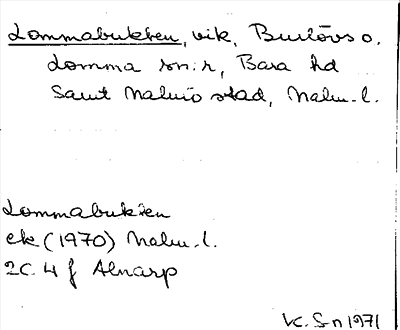 Lommabukten, vik, Burlövs o.
Lomma sn:r, Bara hd
Samt Malmö stad, Malm. l.
Lommabukten
ek (1970) Malm. l.
2C 4 f Alnarp
1971